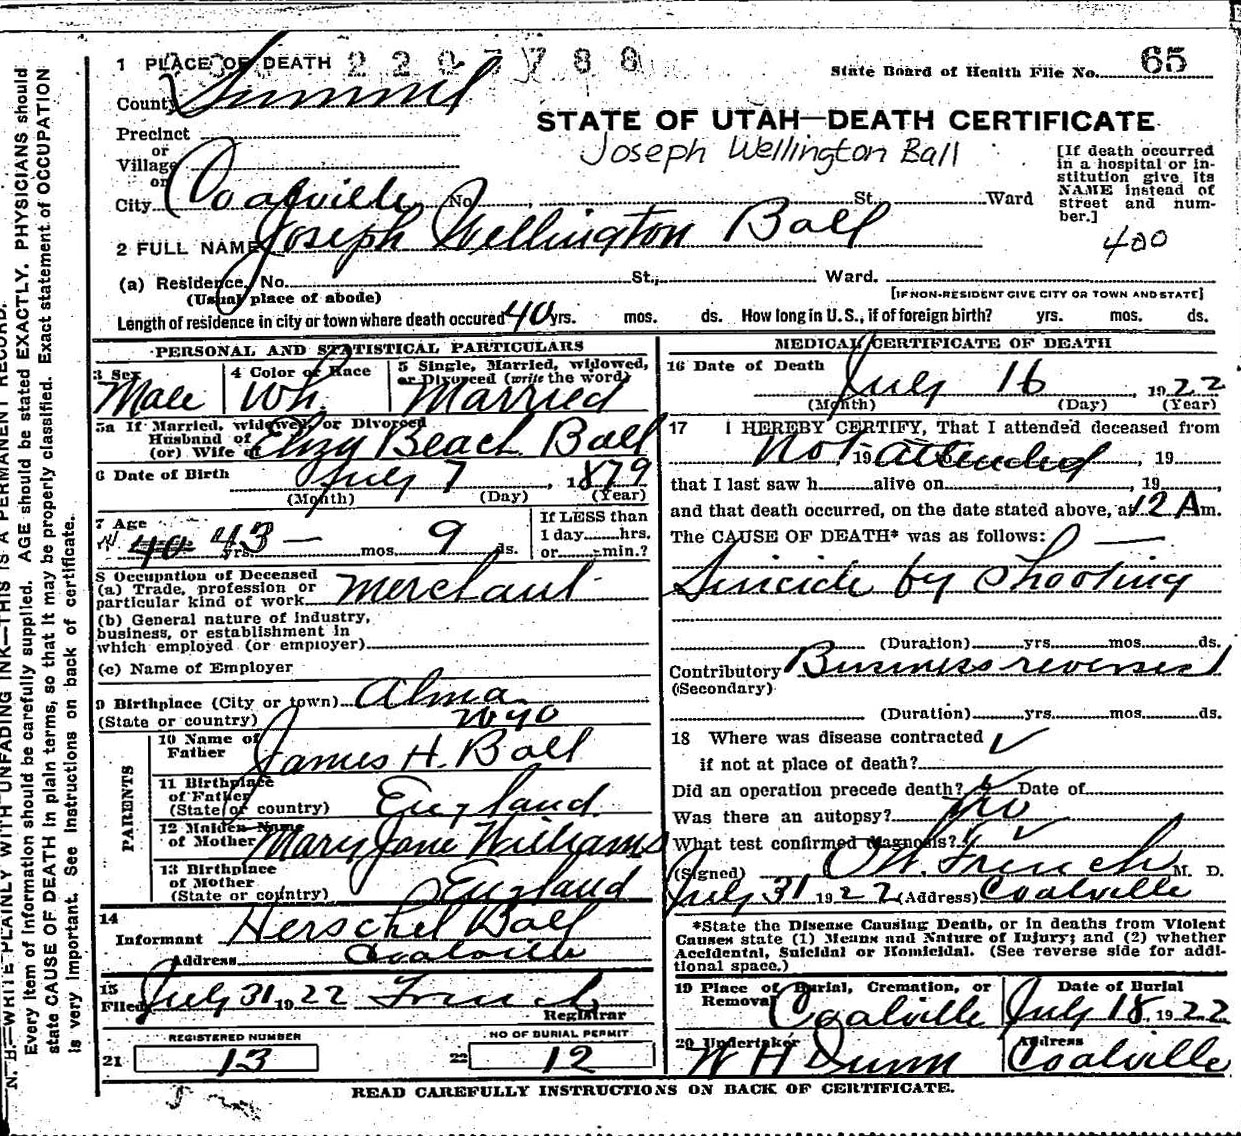 1 PLACE OF DEATH
State Board of Health File No. 65
County Summit
STATE OF UTAH—DEATH CERTIFICATE
Joseph Wellington Ball
Precinct
or
Village
or
City Coalville No. St. Ward
[If death occurred
in a hospital or in-
stitution give its
NAME instead of
street and num-
ber.]
400
2 FULL NAME Joseph Wellington Ball
(a) Residence, No. St., Ward.
(Usual place of abode)
[IF NON-RESIDENT GIVE CITY OR TOWN AND STATE]
Length of residence in city or town where death occured 40 yrs. mos. ds. How long in U. S., if of foreign birth? yrs. mos. ds.
PERSONAL AND STATISTICAL PARTICULARS
3 Sex
Male
4 Color or Race
Wh.
5 Single, Married, widowed,
or Divorced (write the word)
Married
5a If Married, widowed, or Divorced
Husband of
(or) Wife of Beach Ball
6 Date of Birth July 7, 1879
(Month) (Day) (Year)
7 Age
40 43 yrs. — mos. 9 ds.
If LESS than
1 day hrs.
or min.?
8 Occupation of Deceased
(a) Trade, profession or
particular kind of work Merchant
(b) General nature of industry,
business, or establishment in
which employed (or employer)
(c) Name of Employer
9 Birthplace (City or town) Alma
(State or country) Wyo
PARENTS
10 Name of
Father James H. Ball
11 Birthplace
of Father
(State or country) England
12 Maiden Name
of Mother Mary Jane Williams
13 Birthplace
of Mother
(State or country) England
14
Informant Herschel Ball
Address Coalville
15
Filed July 31 1922 French
Registrar
REGISTERED NUMBER
21 13
NO OF BURIAL PERMIT
22 12
MEDICAL CERTIFICATE OF DEATH
16 Date of Death
July 16, 1922
(Month) (Day) (Year)
17 I HEREBY CERTIFY, That I attended deceased from
Not 19 attended, 19
that I last saw h alive on , 19
and that death occurred, on the date stated above, at 12 A m.
The CAUSE OF DEATH* was as follows:
Suicide by Shooting
(Duration) yrs. mos. ds.
Contributory Business reverses
(Secondary)
(Duration) yrs. mos. ds.
18 Where was disease contracted
if not at place of death?
Did an operation precede death? Date of
Was there an autopsy? No
What test confirmed diagnosis?
(Signed) French M. D.
July 31 1922 (Address) Coalville
*State the Disease Causing Death, or in deaths from Violent
Causes state (1) Means and Nature of Injury; and (2) whether
Accidental, Suicidal or Homicidal. (See reverse side for addi-
tional space.)
19 Place of Burial, Cremation, or
Removal Coalville
Date of Burial
July 18, 1922
20 Undertaker
W H Dunn
Address
Coalville
READ CAREFULLY INSTRUCTIONS ON BACK OF CERTIFICATE.
N. B.—WRITE PLAINLY WITH UNFADING INK—THIS IS A PERMANENT RECORD.
Every item of information should be carefully supplied. AGE should be stated EXACTLY. PHYSICIANS should
state CAUSE OF DEATH in plain terms, so that it may be properly classified. Exact statement of OCCUPATION
is very important. See Instructions on back of certificate.